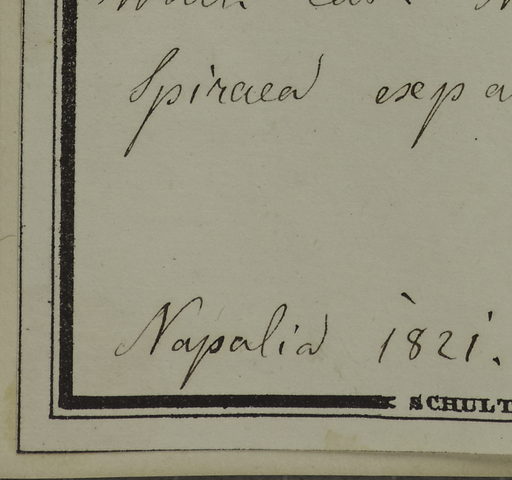 Spiraea expa
Napalia 1821.
SCHULT